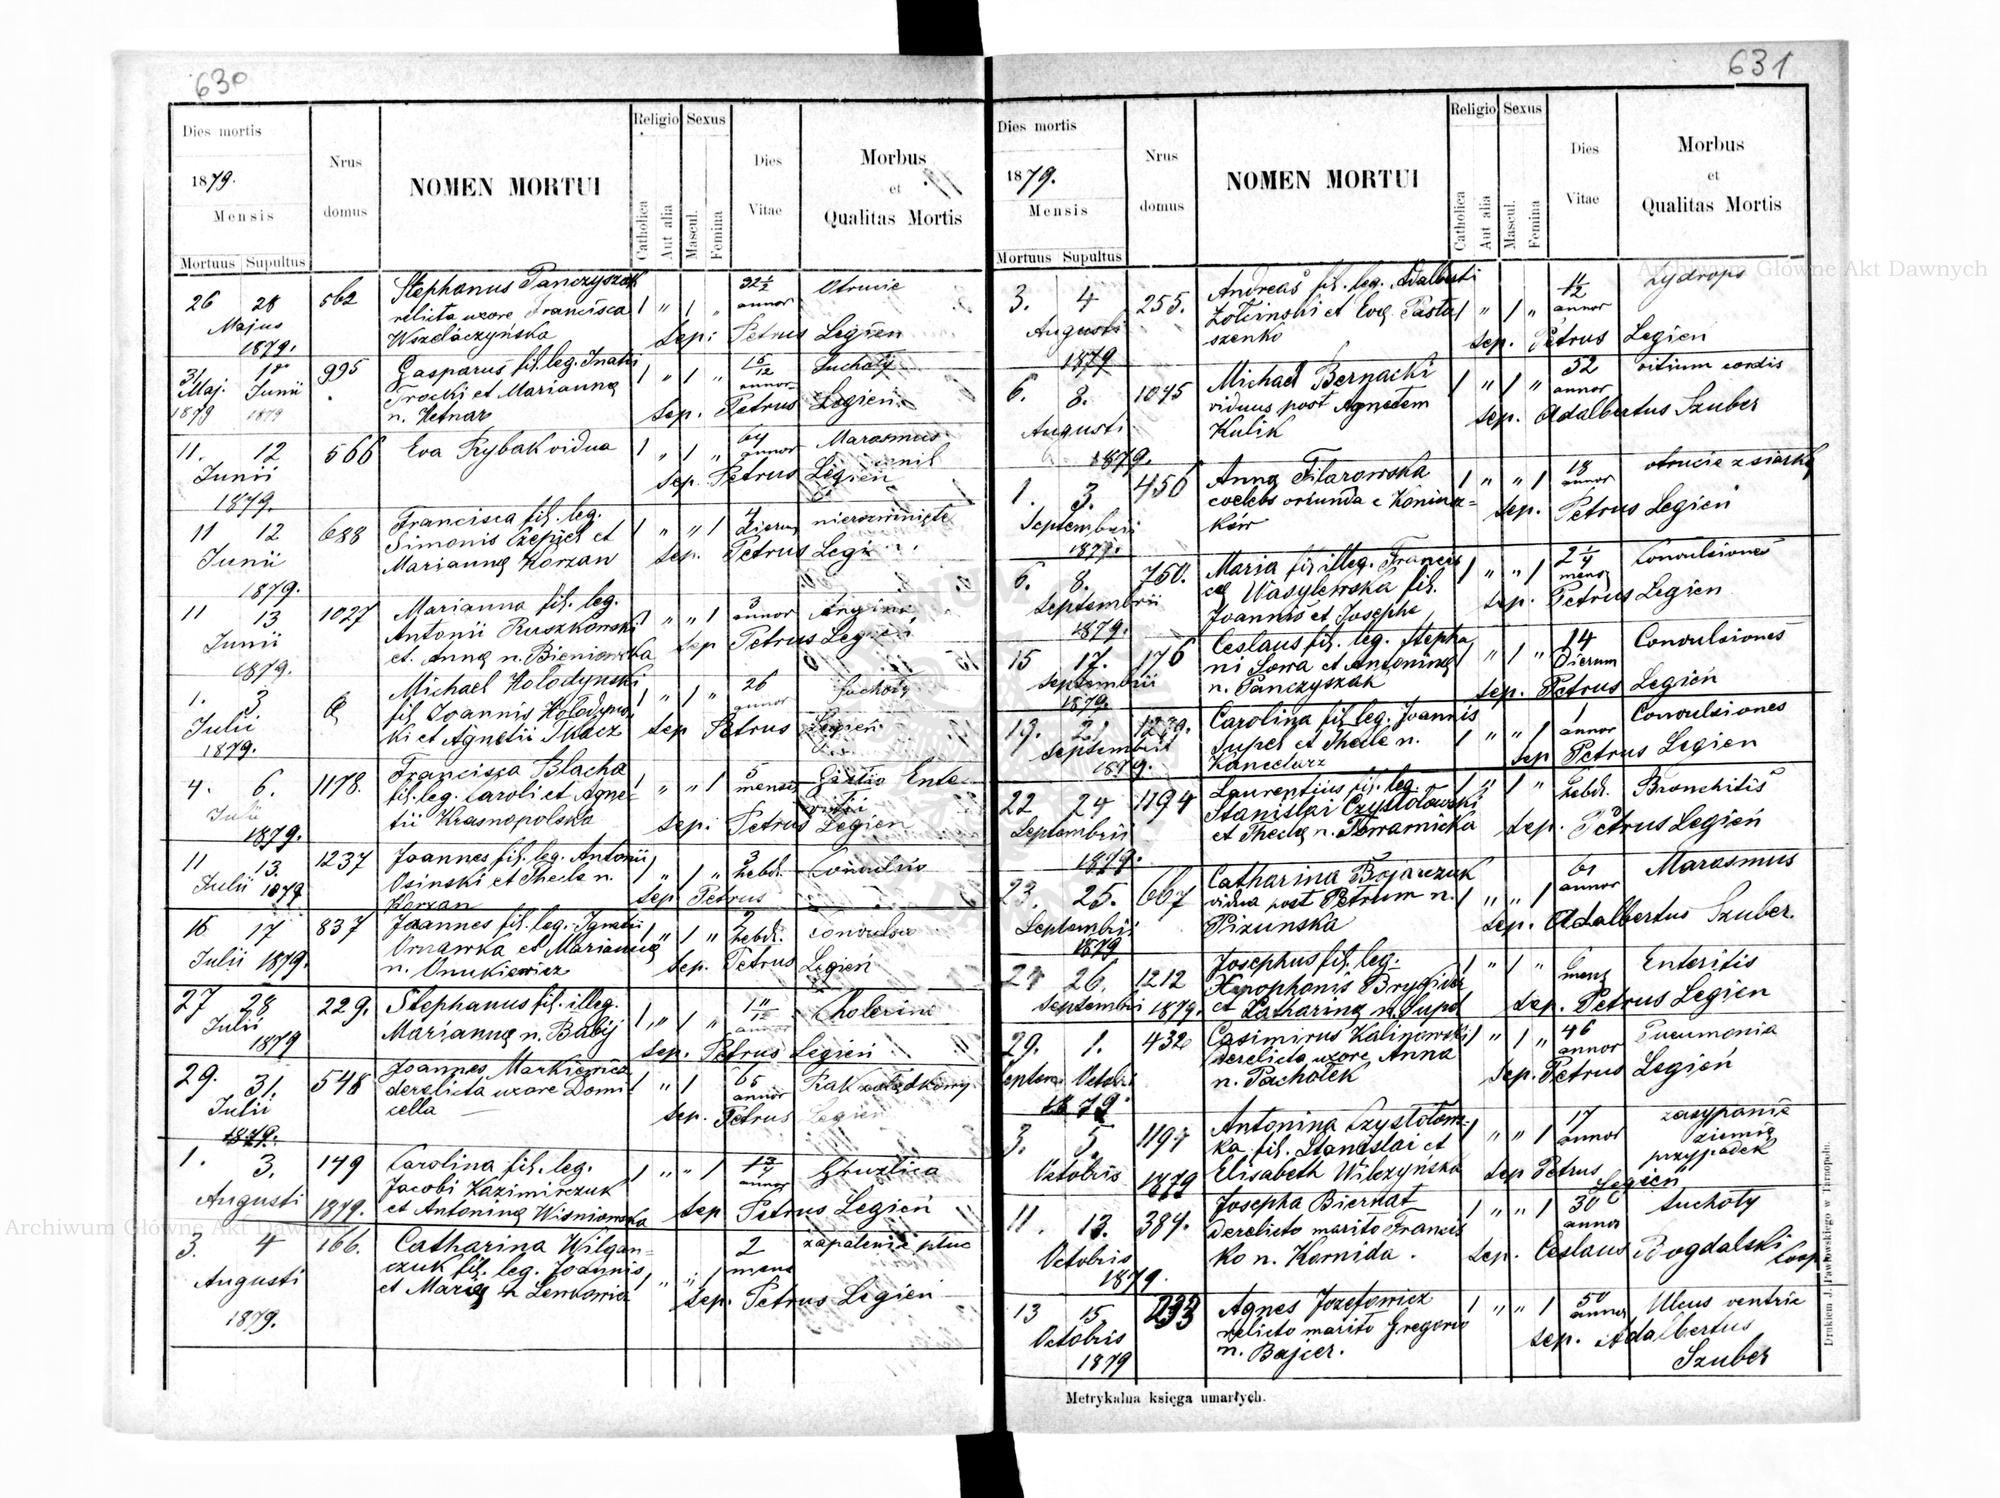 630
Dies mortis
1879.
Mensis
Mortuus Supultus
Nrus
domus
NOMEN MORTUI
Religio
Catholica
Aut alia
Sexus
Mascul.
Femina
Dies
Vitae
Morbus
et
Qualitas Mortis
26 28
Majus
1879.
562
Stephanus Panczyszak
relicta uxore Francisca
Wszelaczyńska
1 " 1 "
32 1/2
annor
Otrucie
Sep: Petrus Legien
31 1
Maj. Junii
1879 1879
995
Gasparus fil. leg. Inatii
Trocki et Marianna
n. Hetnar
1 " 1 "
15/12
annor
Suchoty
Sep. Petrus Legien
11. 12
Junii
1879.
566
Eva Rybak vidua
1 " 1 "
64
annor
Marasmus
senil
Sep. Petrus Legien
11 12
Junii
1879.
688
Francisca fil. leg.
Simonis Czepiel et
Marianna Korzan
1 " " 1
4
dierum
nierozwinięte
Sep. Petrus
11 13
Junii
1879.
1027
Marianna fil. leg.
Antonii Ruszkowski
et. Anna n. Bieniowska
1 " " 1
3
annor
Angina
Sep Petrus Legien
1. 3
Julii
1879.
Michael Holodynski
fil. Joannis Holodyns
ki et Agnetii Tkacz
1 " 1 "
26
annor
Suchoty
Sep Petrus Legien
4. 6.
Julii
1879.
1178.
Francisca Blacha
fil. leg. Caroli et Agne-
tii Krasnopolska
1 " " 1
5
mensis
Sep: Petrus Legien
11 13.
Julii 1879
1237
Joannes fil. leg. Antonii
Osinski et Thecla n.
Korzan
1 " 1 "
3
hebd.
Convulsio
Sep Petrus
16 17
Julii 1879.
837
Joannes fil. leg. Ignatii
Ornawka et Marianna
n. Onukiewicz
1 " 1 "
2
hebd.
Convulsio
Sep. Petrus Legien
27 28
Julii
1879
229.
Stephanus fil. illeg.
Marianna n. Babij
1 " 1 "
annor
Cholerina
Sep. Petrus Legien
29. 31.
Julii
1879.
548
Joannes Markiewicz
derelicta uxore Domi
cella
1 " 1
65
annor
Rak żołądkowy
Sep. Petrus Legien
1. 3.
Augusti
1879.
149
Carolina fil. leg.
Jacobi Kazimirczuk
et Antonina Wisniowska
1 " " 1
annor
Gruzlica
Sep Petrus Legien
3. 4
Augusti
1879.
166.
Catharina Wilgan-
czuk fil. leg. Joannis
et Maria n Lenkowicz
1 " " 1
2
mens
zapalenie płuc
Sep. Petrus Legien
631
Dies mortis
1879.
Mensis
Mortuus Supultus
Nrus
domus
NOMEN MORTUI
Religio
Catholica
Aut alia
Sexus
Mascul.
Femina
Dies
Vitae
Morbus
et
Qualitas Mortis
3. 4
Augusti
1879
255.
Andreas fil. leg. Adalberti
Zołcinski et Eva Pasta
szenko
1 " 1 "
11/12
annor
hydrops
Sep. Petrus Legien
6. 8.
Augusti
1879.
1045
Michael Bernacki
viduus post Agnetem
Kulik
1 " 1 "
52
annor
vitium cordis
Sep. Adalbertus Szuber
1. 3.
Septembrii
1879.
456
Anna Filarowska
coelebs oriunda e Koniusz-
ków
1 " " 1
18
annor
otrucie z siarką
Sep. Petrus Legien
6. 8.
Septembrii
1879.
750.
Maria fil illeg. Francis
ca Wasylewska fil.
Joannis et Josepha
1 " " 1
2 1/4
mens
Convulsiones
Sep. Petrus Legien
15 17.
Septembrii
1879.
176
Ceslaus fil. leg. Stepha
ni Sowa et Antonina
n. Panczyszak
1 " 1 "
14
Dierum
Convulsiones
Sep. Petrus Legien
19. 21
Septembrii
1879.
1239.
Carolina fil leg. Joannis
Supel et Thecle n.
Kancelarz
1 " " 1
1
annor
Convulsiones
Sep Petrus Legien
22 24
Septembrii
1879.
1194
Laurentius fil. leg.
Stanislai Czystołowski
et Thecla n. Towarnicka
1 " 1 "
hebd.
Bronchitis
Sep. Petrus Legien
23. 25.
Septembrii
1879
667
Catharina Bojarczuk
vidua post Petrum n.
Pizunska
1 " " 1
61
annor
Marasmus
Sep. Adalbertus Szuber.
24 26.
Septembrii 1879.
1212
Josephus fil. leg.
Xenophonis Brygider
et Catharina n. Supel
1 " 1 "
6
mens
Enteritis
Sep. Petrus Legien
29. 1.
Septem. Octobr
1879
432
Casimirus Kalinowski
derelicta uxore Anna
n. Pachołek
1 " 1 "
46
annor
Pneumonia
Sep. Petrus Legien
3. 5.
Octobris
1879
1197
Antonina Czystołows-
ka fil. Stanislai et
Elisabeth Wilczyńska
1 " " 1
17
annor
zasypanie
ziemią
przypadek
Sep Petrus
Legien
11. 13.
Octobris
1879.
384.
Josepha Biernat
derelicto marito Francis
ko n. Kornida.
1 " " 1
30
annor
Suchoty
Sep. Ceslaus Bogdalski
Coop
13 15.
Octobris
1879
233
Agnes Jozefowicz
relicto marito Gregorio
n. Bajcer.
1 " " 1
50
annor
Ulcus ventric
Sep. Adalbertus
Szuber
Metrykalna księga umarłych.
Drukiem J. Pawłowskiego w Tarnopolu.
Archiwum Główne Akt Dawnych
Archiwum Główne Akt Dawnych